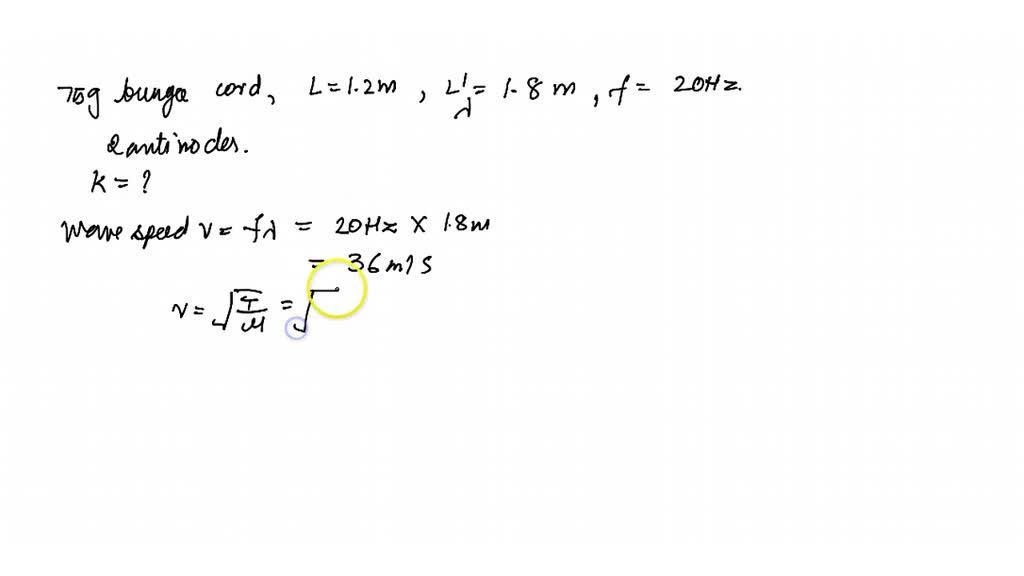 75g bunge cord, L = 1.2m, L' = 1.8 m, f = 20Hz.
λ
2 antinodes.
k = ?
Wave speed v = fλ = 20Hz × 1.8m
= 36 m/s
v = √(T/μ) = √